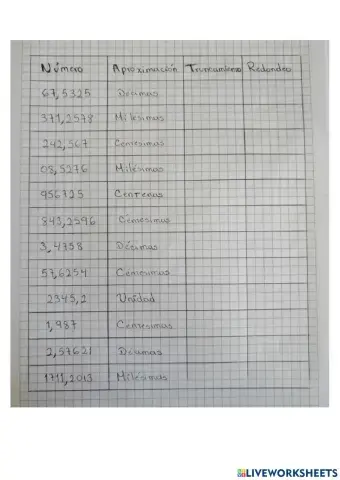 Número Aproximación Truncamiento Redondeo
67,5325 Decimas
371,2578 Milesimas
242,567 Centesimas
08,5276 Milesimas
956725 Centenas
843,2596 Centesimas
3,4758 Décimas
57,6254 Centesimas
2345,2 Unidad
1,987 Centesimas
2,57621 Decimas
1711,2013 Milesimas
LIVEWORKSHEETS